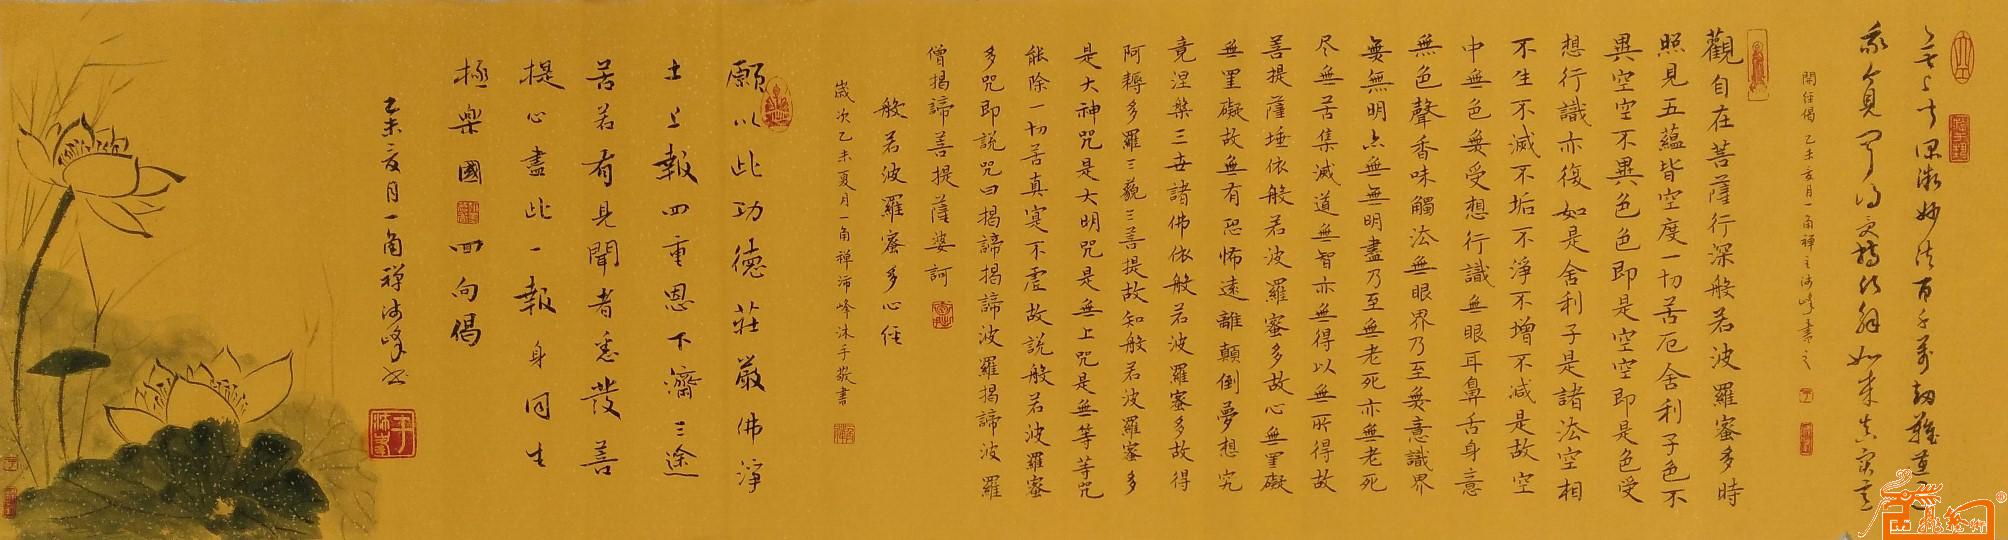 無上甚深微妙法百千萬劫難遭遇
我今見聞得受持願解如來真實義
開経偈 乙未亥月一角禅主沛峰書之
觀自在菩薩行深般若波羅蜜多時
照見五蘊皆空度一切苦厄舍利子色不
異空空不異色色即是空空即是色受
想行識亦復如是舍利子是諸法空相
不生不滅不垢不淨不增不減是故空
中無色無受想行識無眼耳鼻舌身意
無色聲香味觸法無眼界乃至無意識界
無無明亦無無明盡乃至無老死亦無老死
尽無苦集滅道無智亦無得以無所得故
菩提薩埵依般若波羅蜜多故心無罣礙
無罣礙故無有恐怖遠離顛倒夢想究
竟涅槃三世諸佛依般若波羅蜜多故得
阿耨多羅三藐三菩提故知般若波羅蜜多
是大神咒是大明咒是無上咒是無等等咒
能除一切苦真寔不虛故説般若波羅蜜
多咒即説咒曰揭諦揭諦波羅揭諦波羅
僧揭諦菩提薩婆訶
般若波羅蜜多心経
歲次乙未夏月一角禅沛峰沐手敬書
願以此功德莊嚴佛淨
土上報四重恩下濟三途
苦若有見聞者悉發菩
提心盡此一報身同生
極樂國 回向偈
乙未亥月一角禅沛峰書